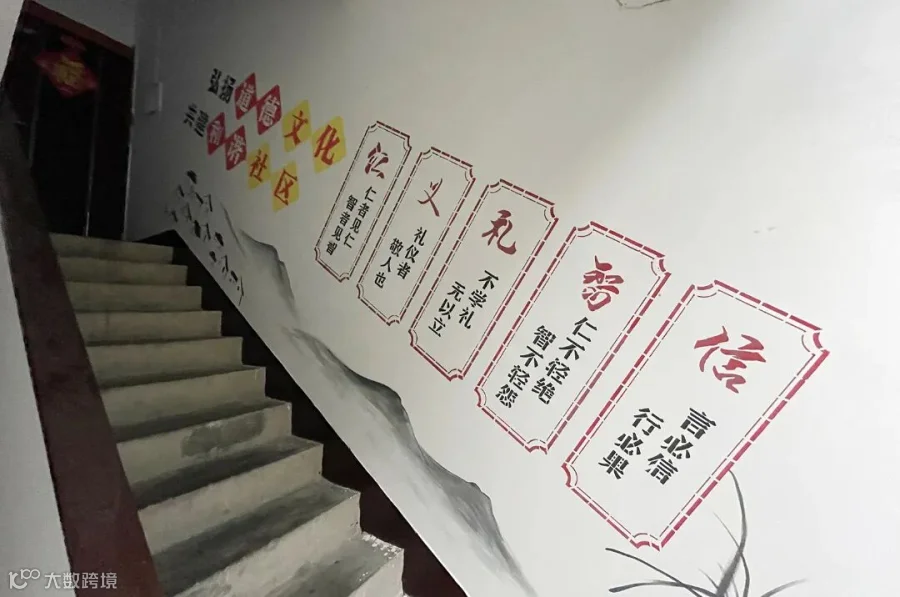 弘扬道德文化
共建和谐社区
仁
仁者见仁
智者见智
义
礼仪者
敬人也
礼
不学礼
无以立
智
仁不轻绝
智不轻怨
信
言必信
行必果
大数跨境